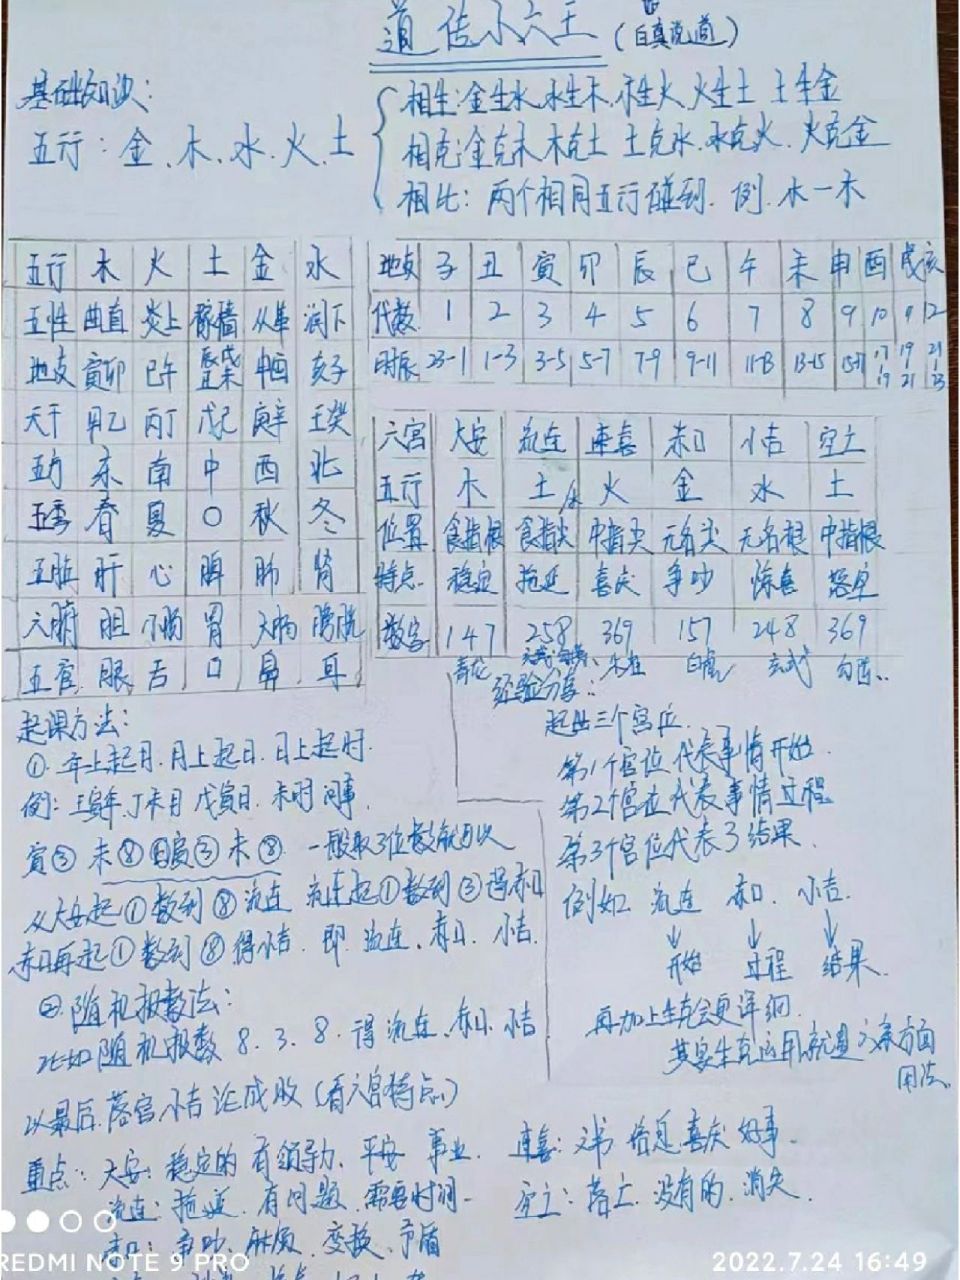 道传小六壬(白真说道)
基础知识:
五行:金、木、水、火、土
相生:金生水、水生木、木生火、火生土 土生金
相克:金克木 木克土 土克水、水克火、火克金
相比:两个相同五行碰到. 例. 木一木
五行 木 火 土 金 水
五性 曲直 炎上 稼穑 从革 润下
地支 寅卯 巳午 辰戌丑未 申酉 亥子
天干 甲乙 丙丁 戊己 庚辛 壬癸
五方 东 南 中 西 北
五季 春 夏 〇 秋 冬
五脏 肝 心 脾 肺 肾
六腑 胆 小肠 胃 大肠 膀胱
五官 眼 舌 口 鼻 耳
地支 子 丑 寅 卯 辰 巳 午 未 申 酉 戌 亥
代数 1 2 3 4 5 6 7 8 9 10 12
时辰 23-1 1-3 3-5 5-7 7-9 9-11 11-13 13-15 15-17 17 19 19 21 21 23
六宫 大安 流连 速喜 赤口 小吉 空亡
五行 木 土/水 火 金 水 土
位置 食指根 食指尖 中指尖 无名尖 无名根 中指根
特点 稳定 拖延 喜庆 争吵 惊喜
数字 147 258 369 157 248 369
青龙 朱雀 白虎 玄武 勾陈
起课方法:
①.年上起月.月上起日.日上起时.
例:壬寅年.丁未月 戊寅日.未时 问事.
寅③ 未⑧ 日寅③ 未⑧. 一般取3位数就可以
从大安起①数到⑧流连 流连起①数到③得赤口
赤口再起①数到⑧得小吉.即 流连、赤口、小吉.
②随机报数法:
比如随机报数 8.3.8.得流连、赤口、小吉
以最后.落宫.小吉论成败(看六宫特点)
经验分享:
起出三个宫位.
第1个宫位代表事情开始.
第2个宫位代表事情过程
第3个宫位代表了结果.
例如 流连 赤口 小吉.
↓ ↓ ↓
开始 过程 结果.
再加上生克会更详细.
其实生克运用就是六亲方面
用法.
重点:大安:稳定的 有领导力、平安 事业.
流连:拖延、有问题、需要时间
赤口:争吵、麻烦、变换、矛盾
速喜:文书 信息 喜庆 好事.
空亡:落亡、没有的、消失.
REDMI NOTE 9 PRO
2022.7.24 16:49